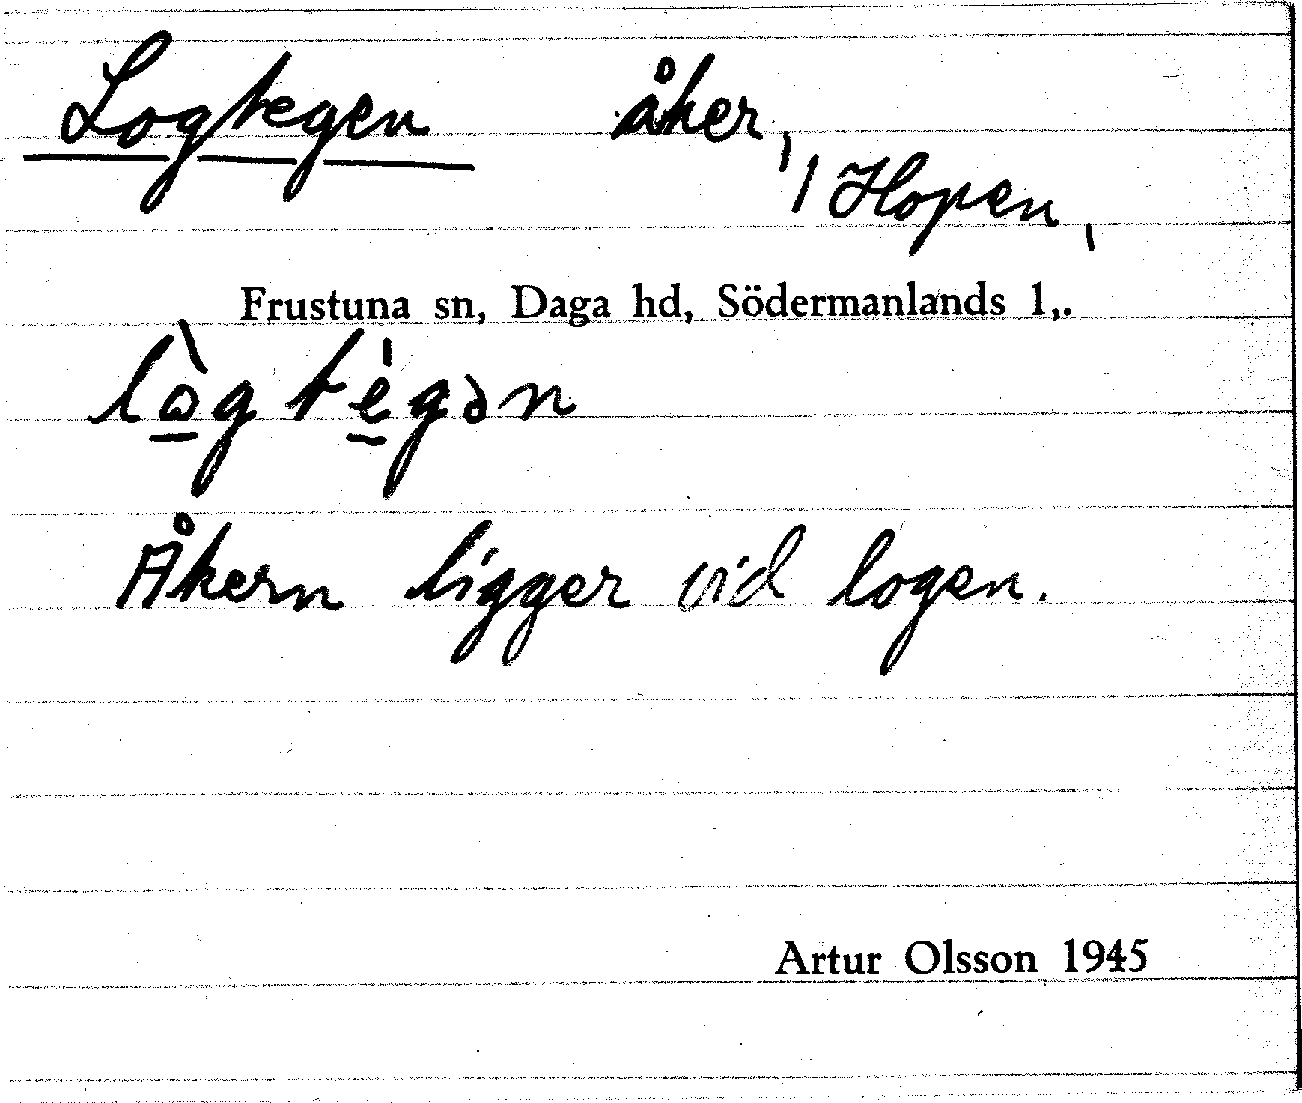 Logtegen åker,
1 Hopen,
Frustuna sn, Daga hd, Södermanlands l,.
lò̲g te̲̍gən
Åkern ligger vid logen.
Artur Olsson 1945